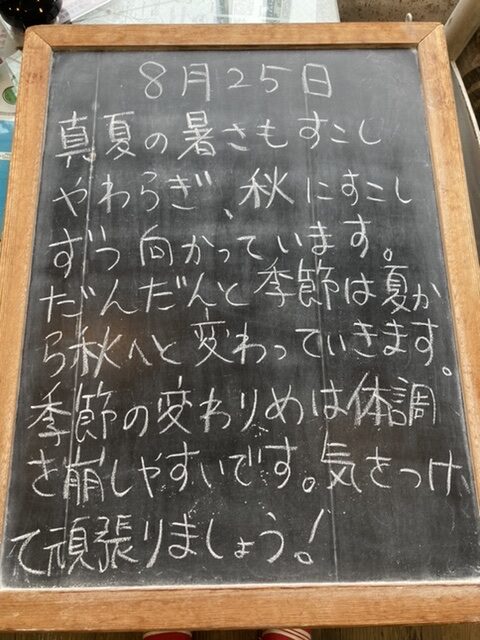 8月25日
真夏の暑さもすこし
やわらぎ、秋にすこし
ずつ向かっています。
だんだんと季節は夏か
ら秋へと変わっていきます。
季節の変わりめは体調
を崩しやすいです。気をつけ
て頑張りましょう!